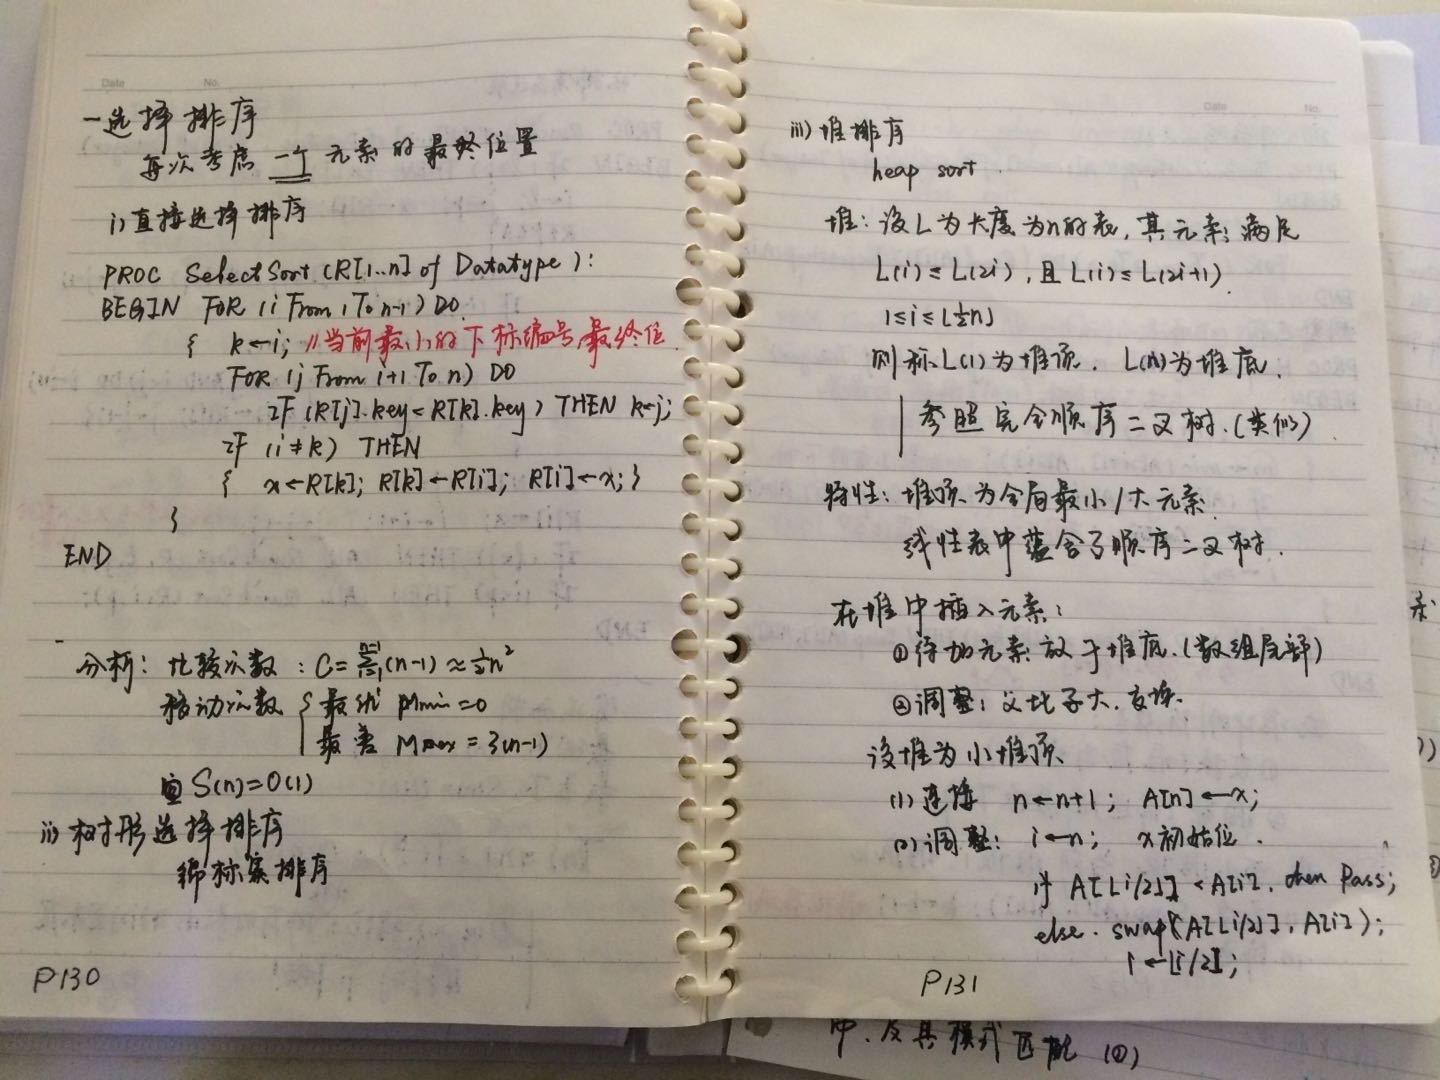 Date No.
一选择排序
每次考虑 一个 元素的最终位置
i) 直接选择排序
PROC SelectSort (R[1..n] of Datatype):
BEGIN FOR (i From 1 To n-1) DO
{ k←i; //当前最小的下标编号,最终位
FOR (j From i+1 To n) DO
IF (R[j].key<R[k].key) THEN k←j;
IF (i≠k) THEN
{ x←R[k]; R[k]←R[i]; R[i]←x; }
}
END
分析: 比较次数: C=∑(n-1)≈½n²
移动次数 { 最优 Mmin=0
最差 Mmax=3(n-1)
S(n)=O(1)
ii) 树形选择排序
锦标赛排序
P130
Date No.
iii) 堆排序
heap sort.
堆: 设L为长度为n的表, 其元素满足
L(i)≤L(2i), 且L(i)≤L(2i+1)
1≤i≤⌊½n⌋
则称L(1)为堆顶. L(n)为堆底.
参照完全顺序二叉树.(类似)
特性: 堆顶为全局最小/大元素.
线性表中蕴含了顺序二叉树.
在堆中插入元素:
①待加元素放于堆底.(数组尾部)
②调整: 父比子大,交换.
设堆为小堆顶
(1) 连接 n←n+1; A[n]←x;
(2) 调整: i←n; x初始位.
if A[⌊i/2⌋]<A[i]. then Pass;
else. swap(A[⌊i/2⌋], A[i]);
i←⌊i/2⌋;
P131
及其模式匹配 (2)